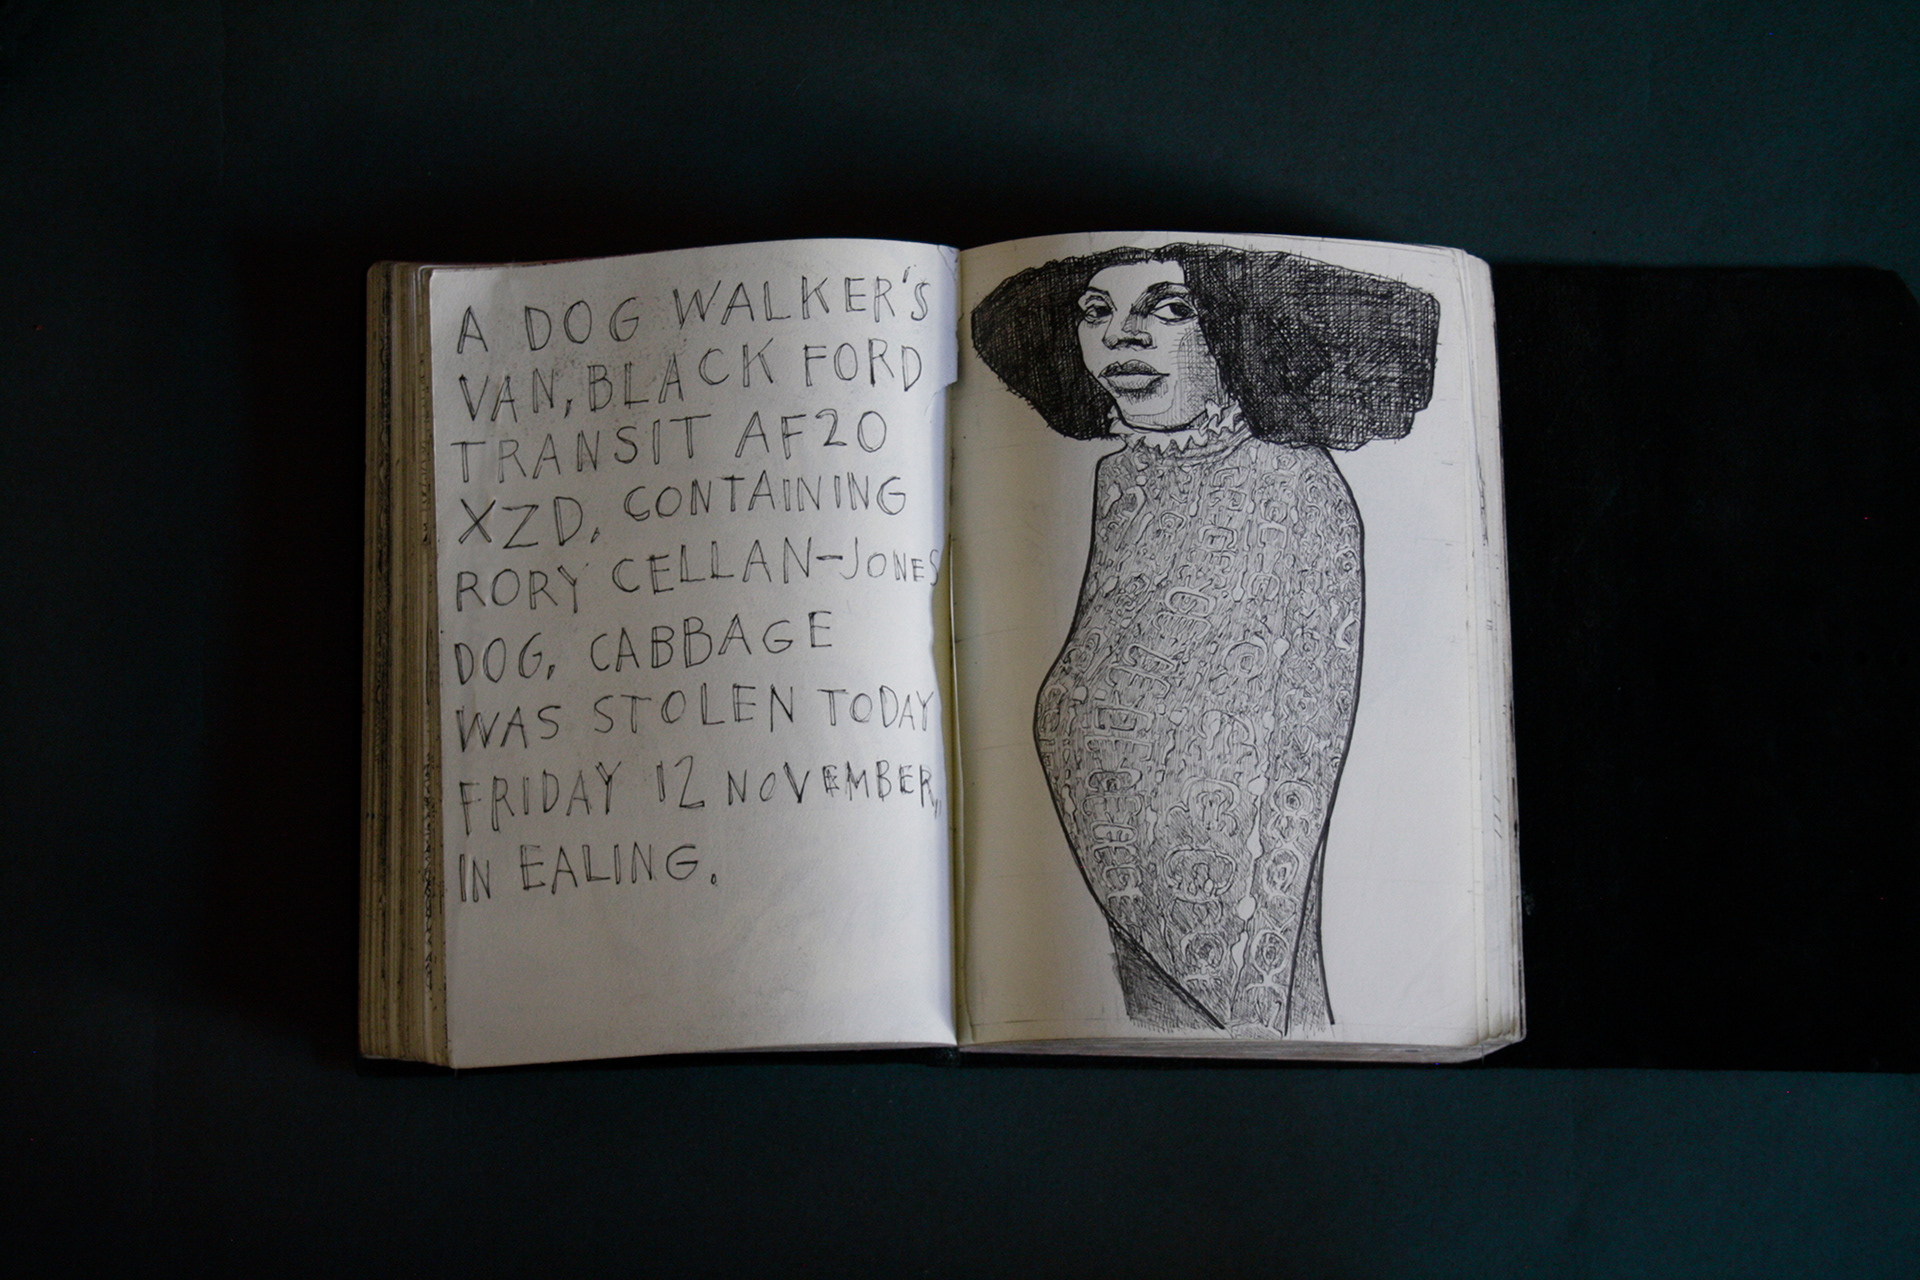 A DOG WALKER'S
VAN, BLACK FORD
TRANSIT AF20
XZD, CONTAINING
RORY CELLAN-JONES
DOG, CABBAGE
WAS STOLEN TODAY
FRIDAY 12 NOVEMBER,
IN EALING.